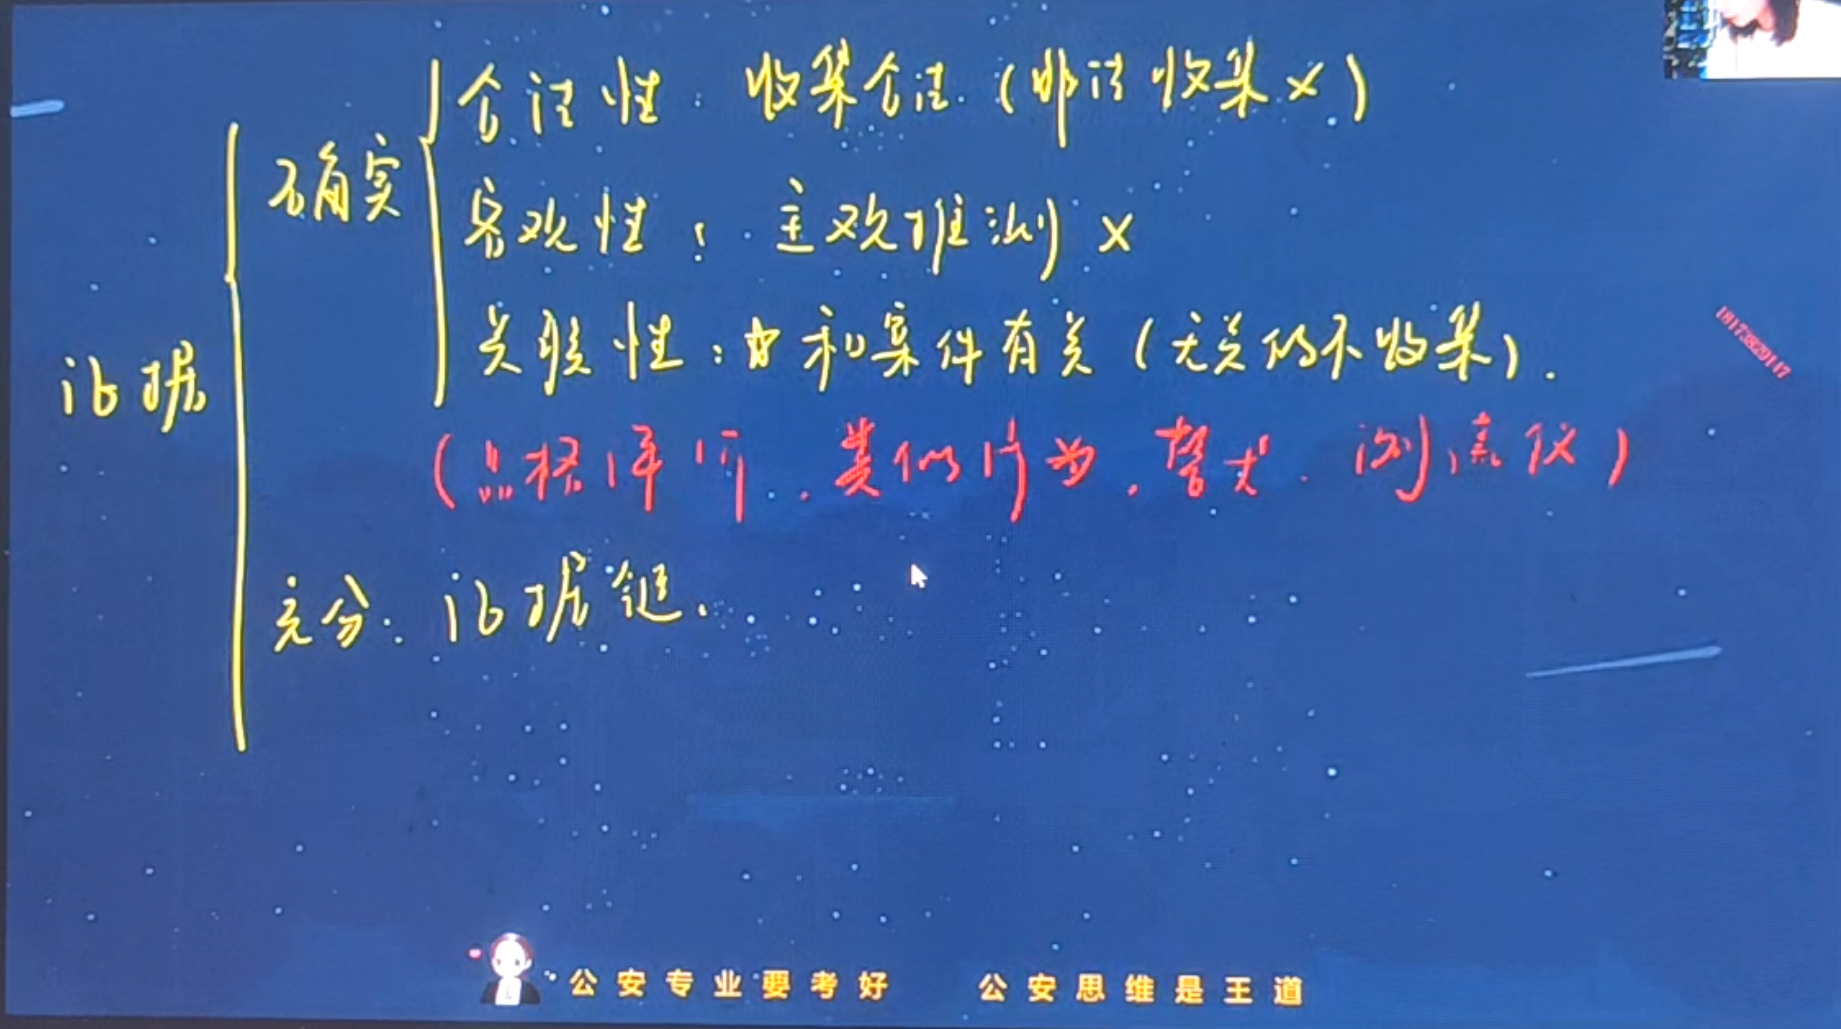 合法性：收集合法（非法收集×）
确实
客观性：主观推测×
证据
关联性：和案件有关（无关的不收集）.
（品格评价，类似行为，警犬、测谎仪）
充分：证据链.
公安专业要考好 公安思维是王道